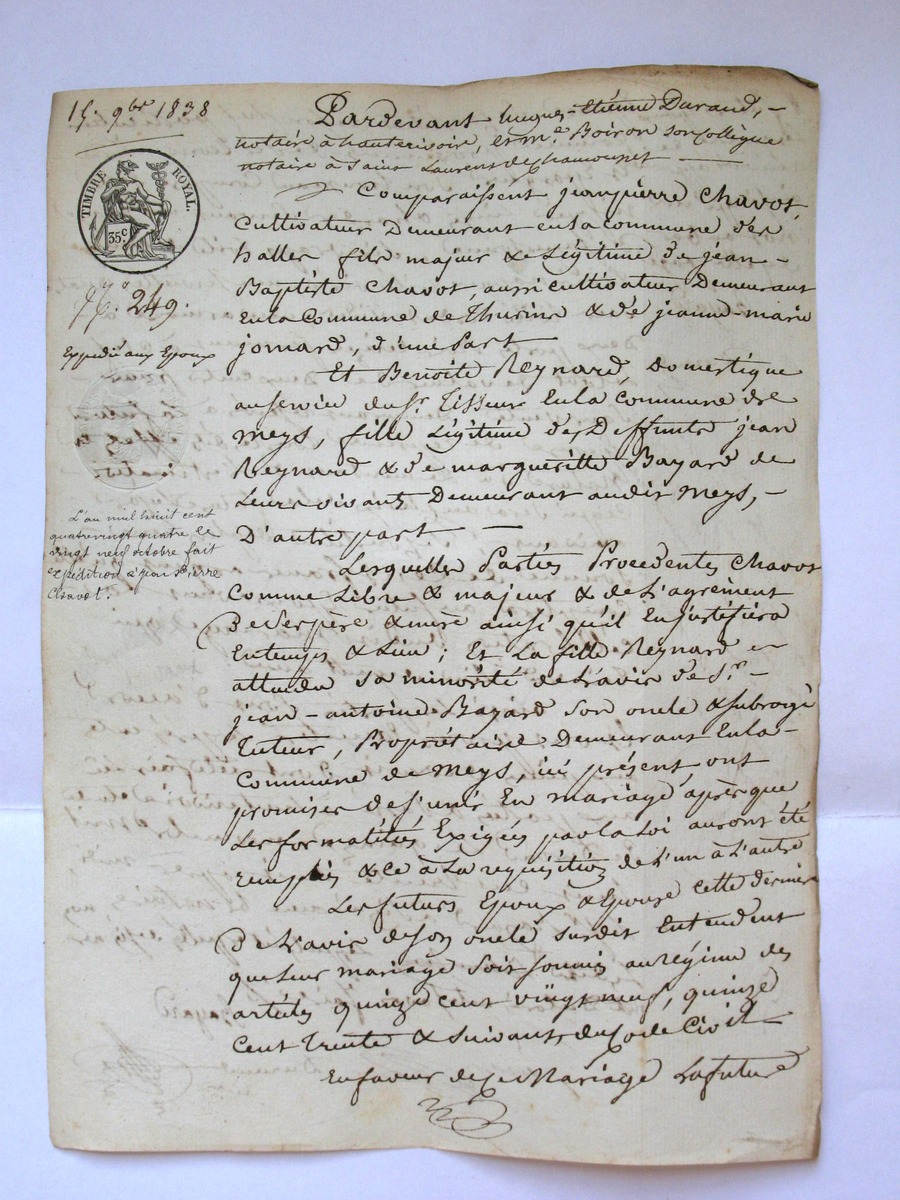 15. 9bre 1838
TIMBRE ROYAL.
35c
No. 249.
Expedié aux Epoux
L'an mil huit cent
quatrevingt quatre le
vingt neuf octobre fait
expédition à jean Pierre
Chavot.
Pardevant hugues-Etienne Durand, -
notaire à hauterivoire, et me. Boiron son collègue
notaire à Saint Laurent de Chamousset
Comparaissent jean pierre Chavot,
Cultivateur Demeurant en la commune des
halles fils majur & Légitime de jean-
Baptiste Chavot, aussi cultivateur Demeurant
En la Commune de Thurins & de jeanne-marie
jomard, d'une Part
Et Benoite Reynard, Domestique
au service du Sr. Tisseur En la commune de
Meys, fille Légitime des Deffunts jean
Reynard & de margueritte Bayard de
Leurs vivants Demeurant audit Meys, -
D'autre part
Lesquelles Parties Procedentes Chavot
Comme Libre & majeur & de L'agrèment
De Ses père & mère ainsi qu'il En justifiera
En temps & Lieu; Et La fille Reynard en
attendu sa minorité de L'avis de Sr. -
jean-antoine Bayard son oncle & subrogé
Tuteur, Propriétaire Demeurant En la -
Commune de Meys, ici présent, ont
promises de s'unir En mariage après que
Les formalités Exigées par la Loi auront été
remplies & ce à La requisition de L'un à L'autre
Les futurs Epoux & Epouse cette dernière
De L'avis de son oncle susdit Entendent
que Leur mariage soit soumis au régime des
articles quinze cent vingt neuf, quinze
Cent Trente & suivants du Code Civil
En faveur de Ce Mariage La future